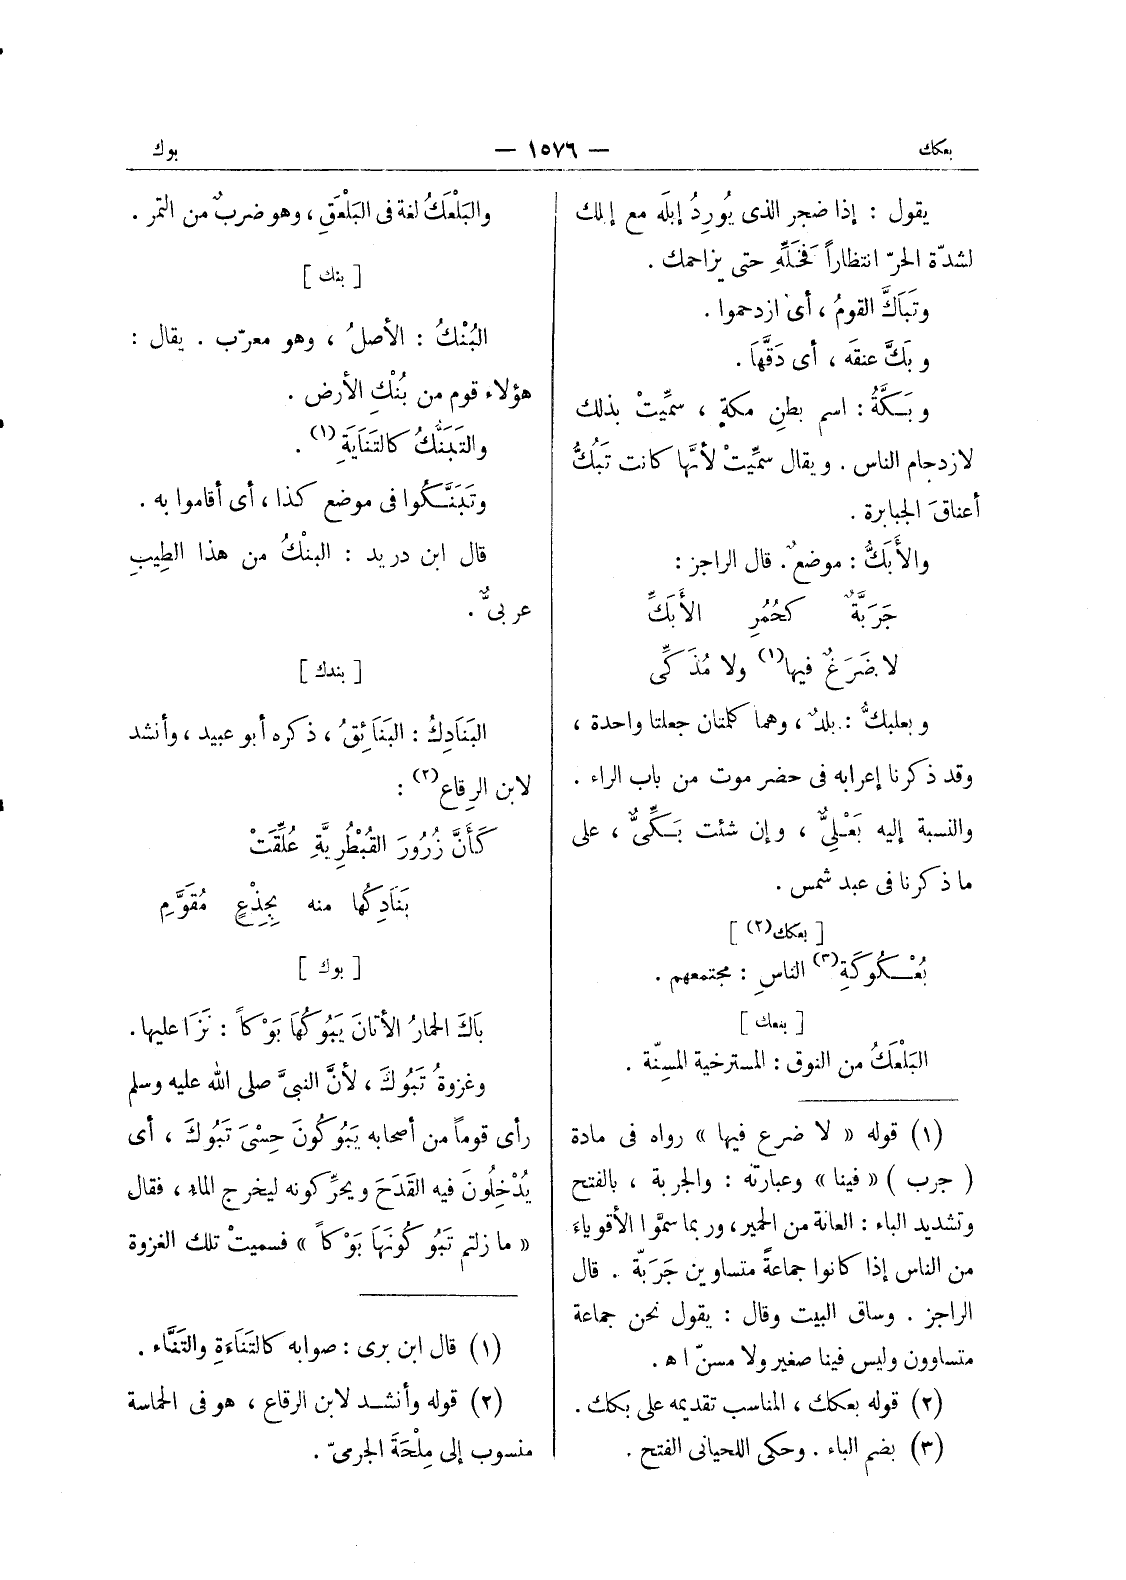 بعكك — ١٥٧٦ — بوك
يقول : إذا ضجر الذى يُورِدُ إبلَه مع إبلك
لشدّة الحرّ انتظاراً فَخَلِّهِ حتى يزاحمك .
وتَبَاكَّ القومُ ، أى ازدحموا .
و بَكَّ عنقَه ، أى دَقَّهَا .
و بَكَّةُ : اسم بطنِ مكةٍ ، سمِّيتْ بذلك
لازدحام الناس . و يقال سمِّيتْ لأنَّها كانت تَبُكُّ
أعناقَ الجبابرة .
والأَبَكُّ : موضعٌ . قال الراجز :
جَرَبَّةٌ كَحُمُرِ الأَبَكِّ
لا ضَرَعٌ فيها (١) ولا مُذَكِّى
و بعلبكُّ : بلدٌ ، وهما كلمتان جعلتا واحدة ،
وقد ذكرنا إعرابه فى حضر موت من باب الراء .
والنسبة إليه بَعْلِىٌّ ، و إن شئت بَكِّىٌّ ، على
ما ذكرنا فى عبد شمس .
[ بعكك (٢) ]
بُعْكُوكَةِ (٣) الناسِ : مجتمعهم .
[ بلعك ]
البَلْعَكُ من النوق : المسترخية المسِنّة .
(١) قوله « لا ضرع فيها » رواه فى مادة
( جرب ) « فينا » وعبارته : والجربة ، بالفتح
وتشديد الباء : العانة من الحمير ، وربما سمَّوا الأقوياءَ
من الناس إذا كانوا جماعةً متساوين جَرَبّة . قال
الراجز . وساق البيت وقال : يقول نحن جماعة
متساوون وليس فينا صغير ولا مسنّ ا ه .
(٢) قوله بعكك ، المناسب تقديمه على بكك .
(٣) بضم الباء . وحكى اللحيانى الفتح .
والبَلْعَكُ لغة فى البَلْعَقِ ، وهو ضربٌ من التمر .
[ بنك ]
البُنْكُ : الأصلُ ، وهو معرّب . يقال :
هؤلاء قوم من بُنْكِ الأرض .
والتَبَنُّكُ كالتَنَايَةِ (١) .
وتَبَنَّكُوا فى موضع كذا ، أى أقاموا به .
قال ابن دريد : البنْكُ من هذا الطِيبِ
عربىٌّ .
[ بندك ]
البَنَادِكُ : البَنَائِقُ ، ذكره أبو عبيد ، وأنشد
لابن الرِقاع (٢) :
كَأَنَّ زُرُورَ القُبْطُرِيَّةِ عُلِّقَتْ
بَنَادِكُها منه بِجِذْعٍ مُقَوَّمِ
[ بوك ]
بَاكَ الحمارُ الأتانَ يَبُوكُهَا بَوْكاً : نَزَا عليها .
وغزوةُ تَبُوكَ ، لأنَّ النبىَّ صلى الله عليه وسلم
رأى قوماً من أصحابه يَبُوكُونَ حِسْىَ تَبُوكَ ، أى
يُدْخِلُونَ فيه القَدَحَ و يحرِّكونه ليخرج الماء ، فقال
« ما زلتم تَبُوكُونَهَا بَوْكاً » فسميتْ تلك الغزوة
(١) قال ابن برى : صوابه كالتَنَاءَةِ والتَنَّاء .
(٢) قوله وأنشد لابن الرقاع ، هو فى الحماسة
منسوب إلى مِلْحَةَ الجرمىّ .